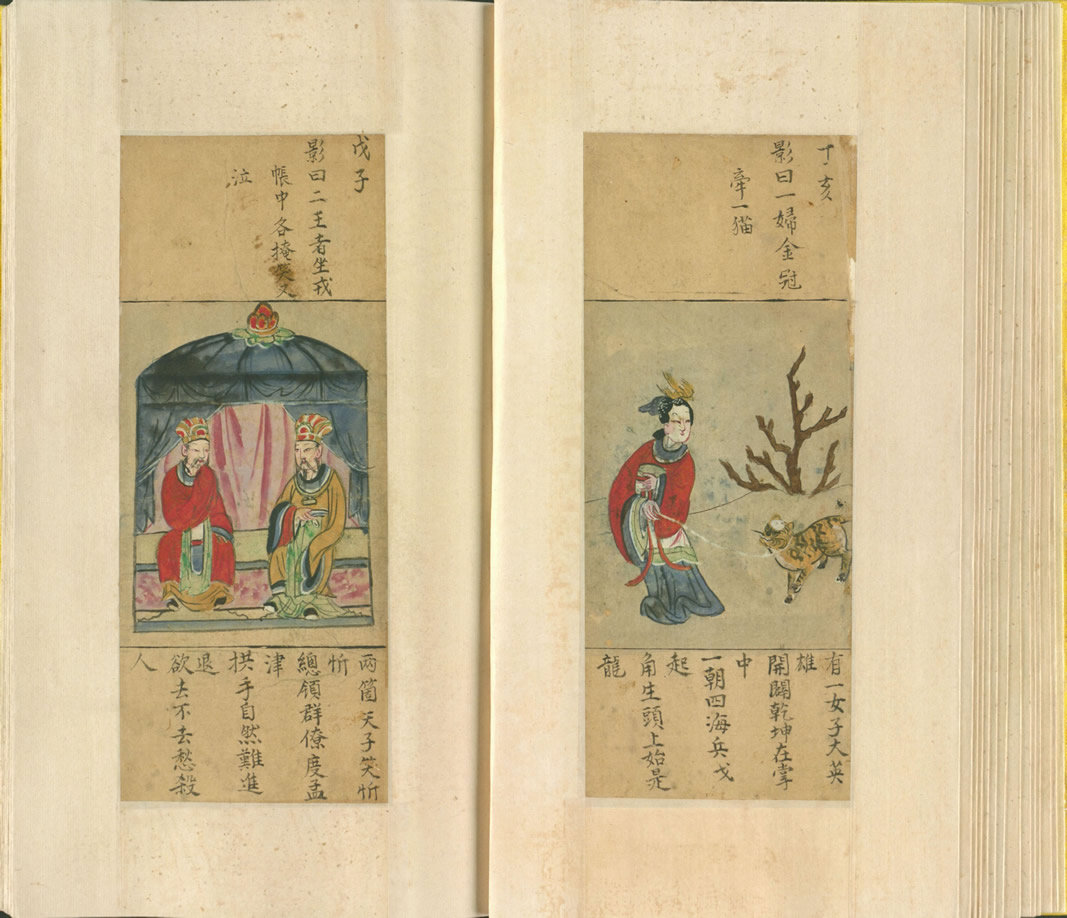 丁亥
影曰一婦金冠
牽一猫
有一女子大英
雄
開闢乾坤在掌
中
一朝四海兵戈
起
角生頭上始是
龍
戊子
影曰二王者坐戎
帳中各掩笑又
泣
两箇天子笑忻
忻
總領群僚度孟
津
拱手自然難進
退
欲去不去愁殺
人